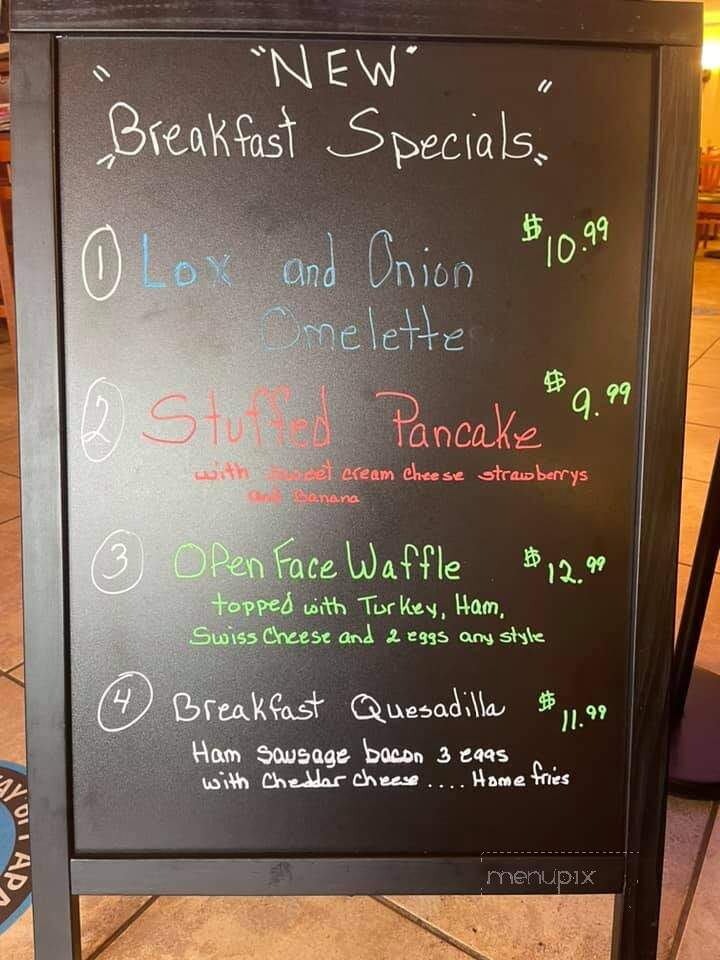 "NEW"
Breakfast Specials
1 Lox and Onion $10.99
Omelette
2 Stuffed Pancake $9.99
with sweet cream cheese strawberrys
and Banana
3 Open Face Waffle $12.99
topped with Turkey, Ham,
Swiss Cheese and 2 eggs any style
4 Breakfast Quesadilla $11.99
Ham Sausage bacon 3 eggs
with Cheddar cheese .... Home fries
menupix